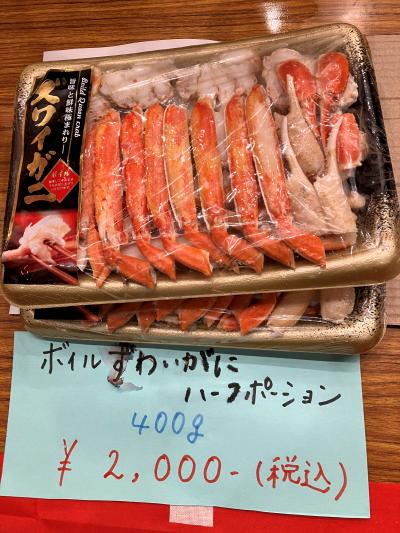 Boild Zuwai crab
旨味と鮮味極まれり
ズワイガニ
ボイルずわいがに
ハーフポーション
400g
¥2,000-(税込)